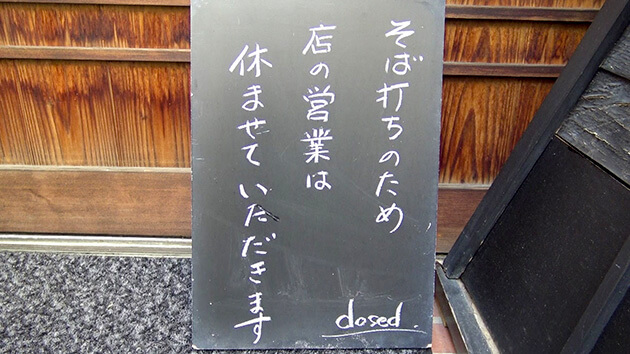 そば打ちのため
店の営業は
休ませていただきます
closed.